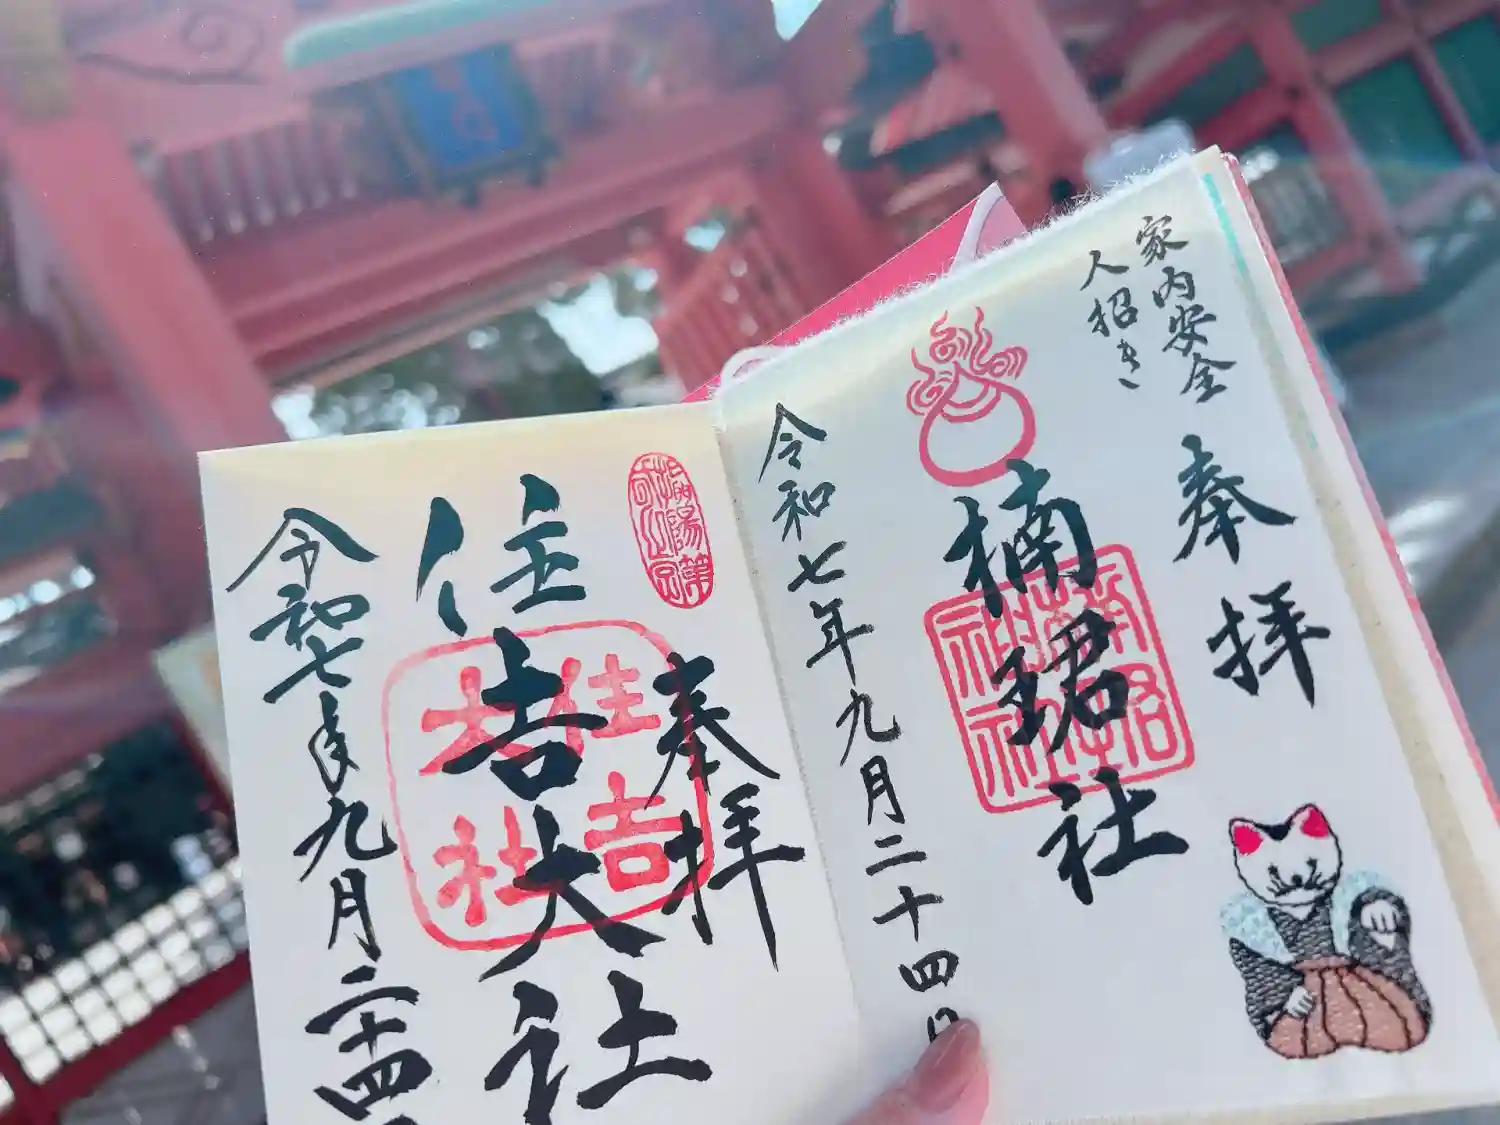 家内安全
人招き
奉拝
楠珺社
令和七年九月二十四日
奉拝
住吉大社
住吉
大社
令和七年九月二十四